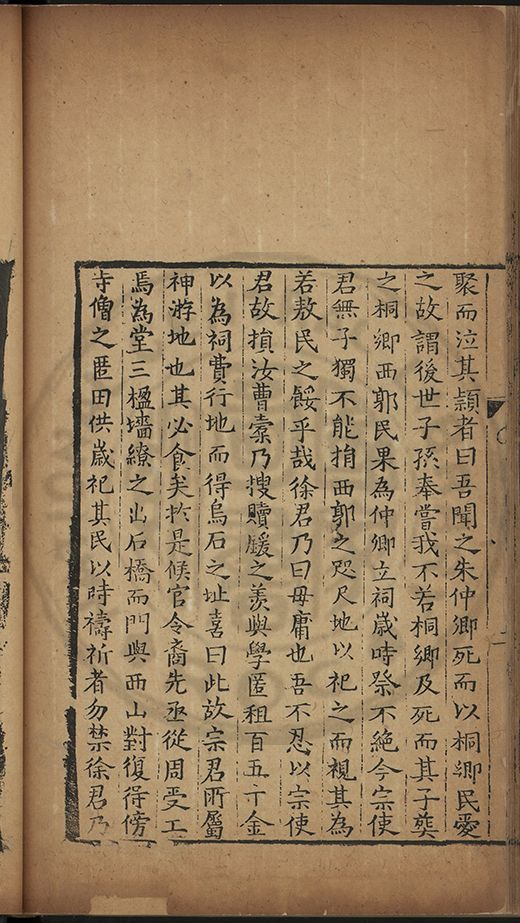 聚而泣其顈者曰吾聞之朱仲卿死而以桐鄉民愛
之故謂後世子孫奉嘗我不若桐鄉及死而其子葬
之桐鄉西郭民果為仲卿立祠歲時祭不絕今宗使
君無子獨不能捐西郭之咫尺地以祀之而視其為
若敖民之餒乎哉徐君乃曰毋庸也吾不忍以宗使
君故損汝曹橐乃搜贖鍰之羨與學匿租百五十金
以為祠費行地而得烏石之址喜曰此故宗君所屬
神游地也其必食矣於是候官令裔先丞從周受工
焉為堂三楹墻繚之出石橋而門與西山對復得傍
寺僧之匿田供歲祀其民以時禱祈者勿禁徐君乃